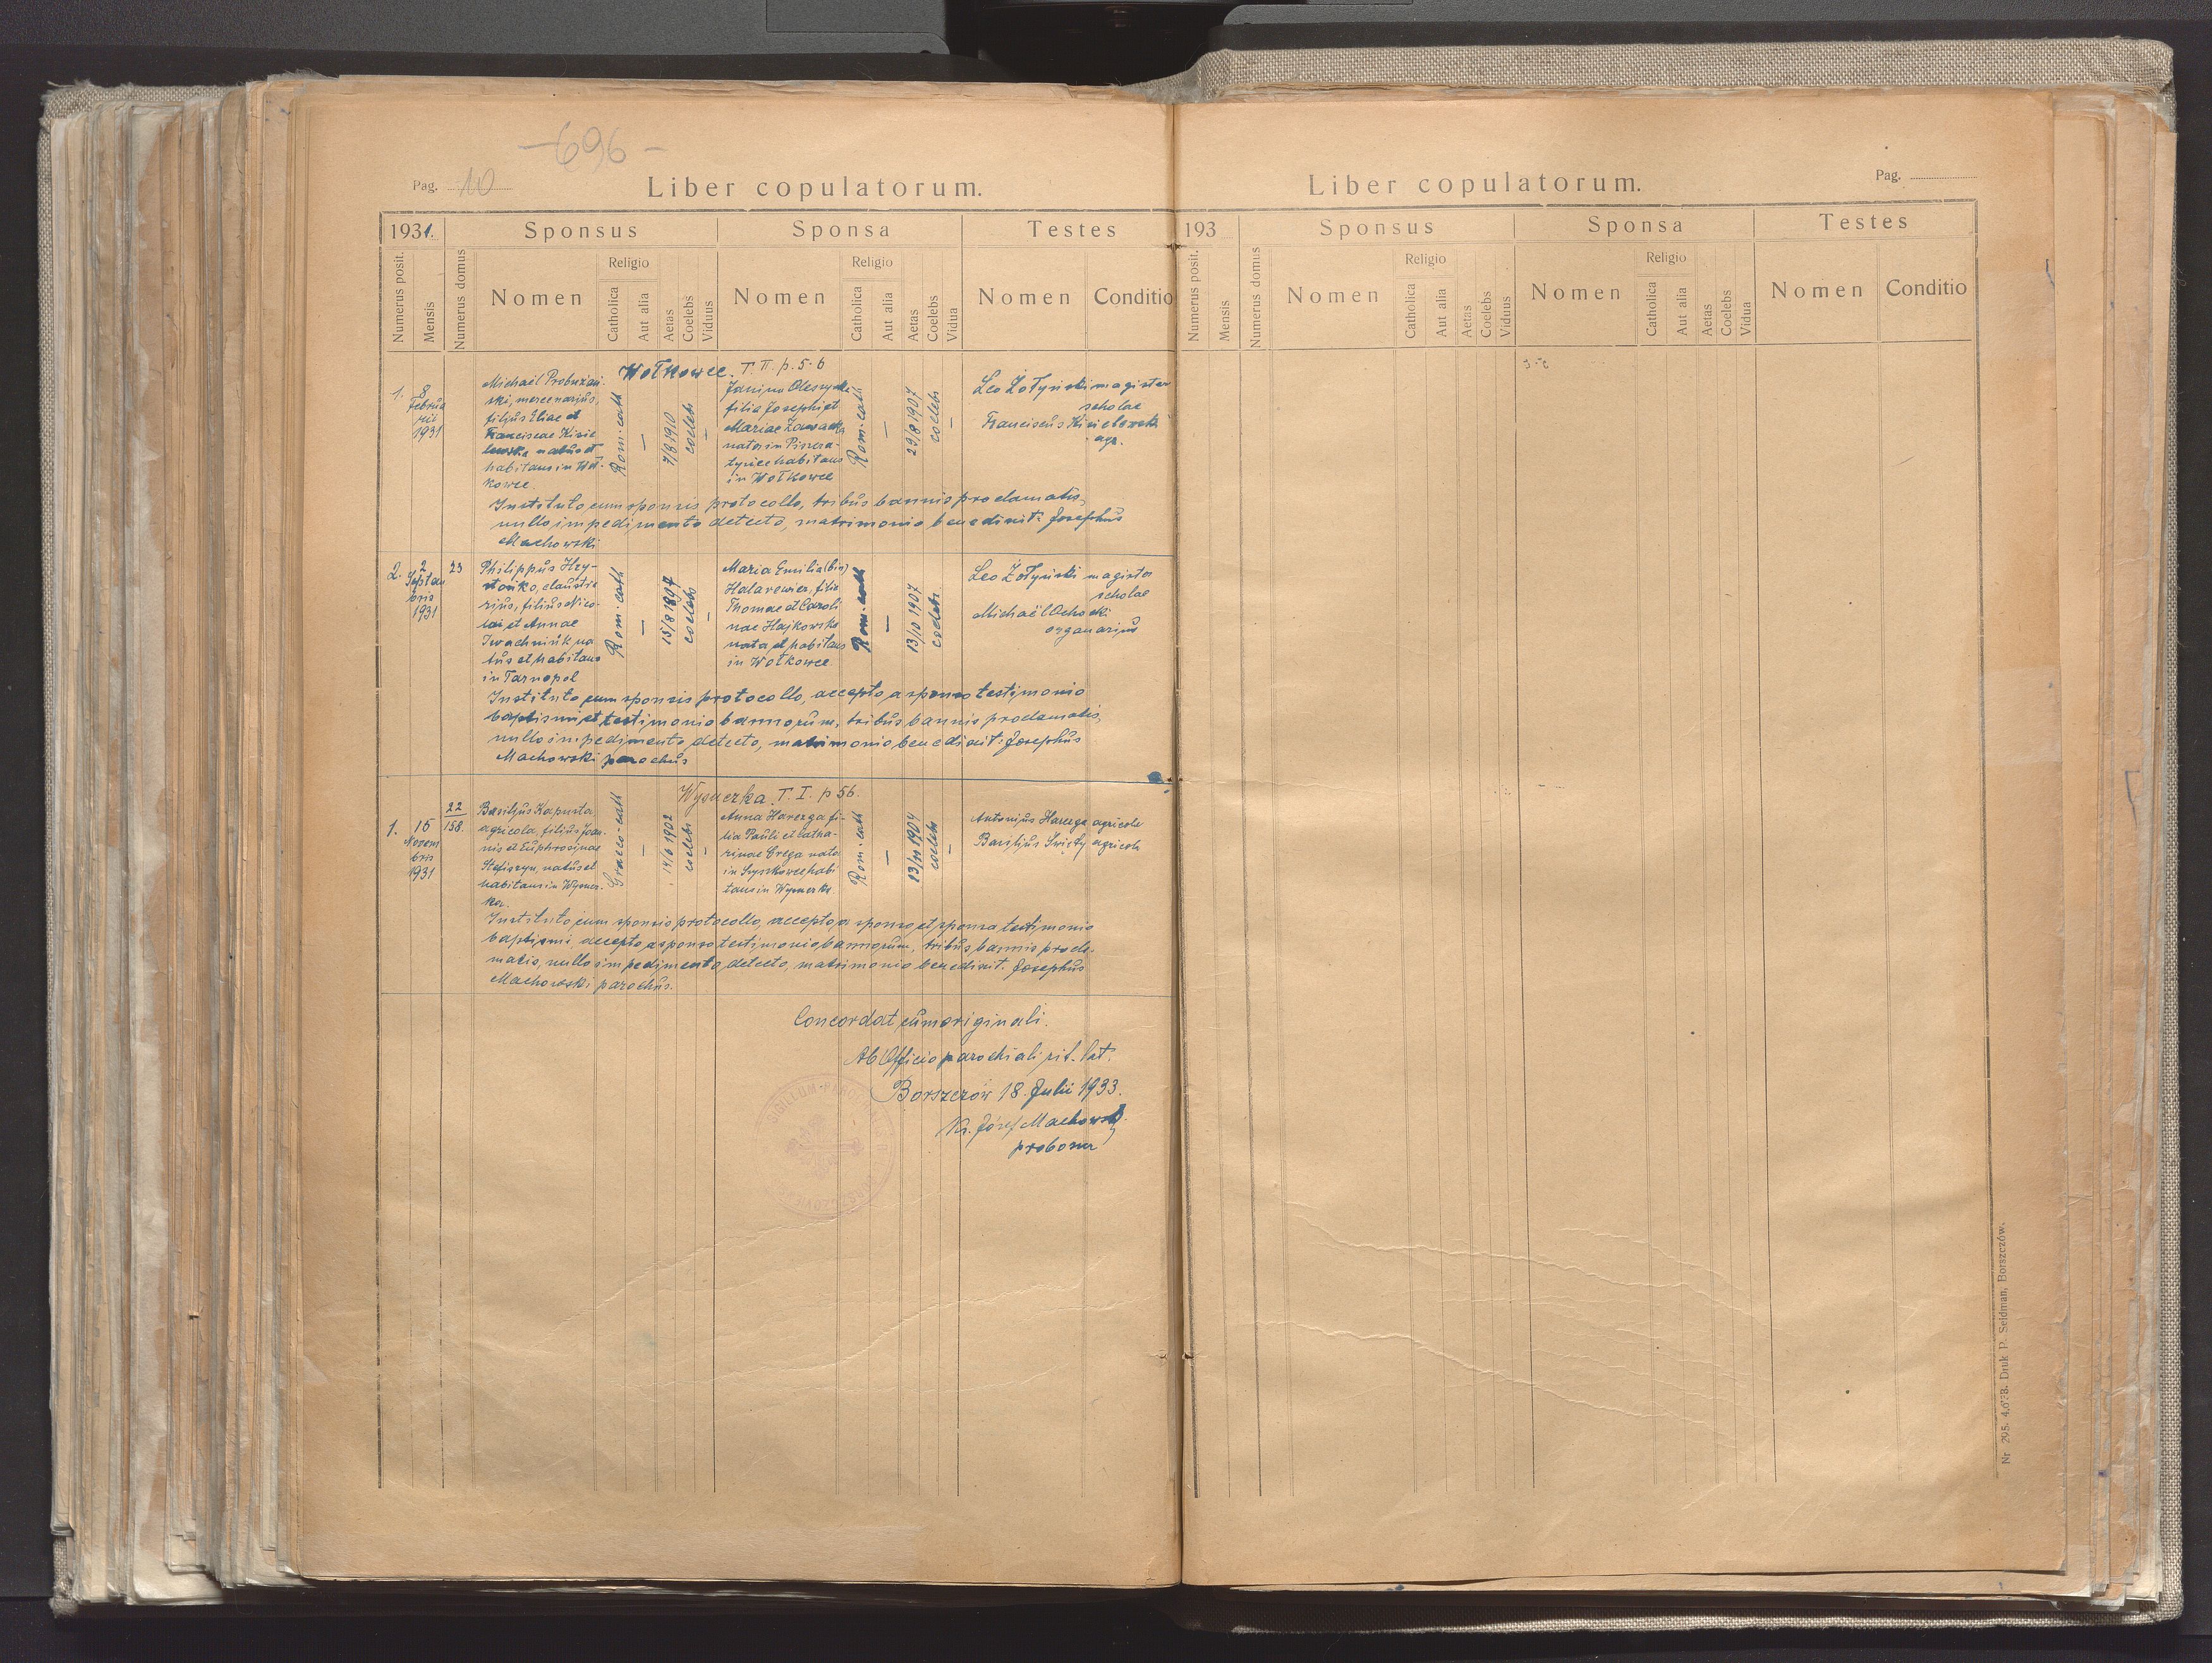 - 696 -
Pag. 10
Liber copulatorum.
1931.
Sponsus
Sponsa
Testes
Numerus posit.
Mensis
Numerus domus
Nomen
Religio
Catholica
Aut alia
Aetas
Coelebs
Viduus
Nomen
Religio
Catholica
Aut alia
Aetas
Coelebs
Vidua
Nomen
Conditio
Wołkowce. T. II. p. 5·6
1.
8
Februa
rii
1931
Michaël Probużań-
ski, mercenarius,
filius Eliae et
Franciscae Kisie
lewska natus et
habitans in Woł-
kowce.
Rom. cath
—
7/8 1910
coelebs
—
Janina Oleszycka
filia Josephi et
Mariae Zawacka
nata in Piszcza-
tyńce habitans
in Wołkowce
Rom. cath
—
29/8 1907
coelebs
—
Leo Żołyński magister
scholae
Franciscus Kisielewski
agr.
Instituto cum sponsis protocollo, tribus bannis proclamatis,
nullo impedimento detecto, matrimonio benedixit: Josephus
Machowski
2.
2
Septem
bris
1931
23
Philippus Hry-
ńońko, claustra
rius, filius Nico-
lai et Annae
Iwachniuk na
tus et habitans
in Tarnopol
Rom. cath
—
15/8 1897
coelebs
—
Maria Emilia (bin)
Halarewicz, filia
Thomae et Caroli
nae Hajkowska
nata et habitans
in Wołkowce
Rom. cath
—
13/10 1907
coelebs
—
Leo Żołyński magister
scholae
Michaël Ochocki
organarius
Instituto cum sponsis protocollo, accepto, a sponso testimonio
baptismi et testimonio bannorum, tribus bannis proclamatis,
nullo impedimento detecto, matrimonio benedixit: Josephus
Machowski parochus
Wysuczka. T. I. p 56.
1.
15
Novem
bris
1931
22
158.
Basilius Kapusta
agricola, filius Joan-
nis et Euphrosinae
Stefiszyn, natus et
habitans in Wysucz-
ka.
Graeco-cath
—
14/6 1902
coelebs
—
Anna Harczga fi-
lia Pauli et Catha-
rinae Grega nata
in Łysskowce habi
tans in Wysuczka
Rom. cath
—
13/11 1904
coelebs
—
Antonius Harczga agricola
Basilius Święty agricola
Instituto cum sponsis protocollo, accepto a sponso et sponsa testimonio
baptismi, accepto a sponso testimonio bannorum, tribus bannis procla-
matis, nullo impedimento detecto, matrimonio benedixit. Josephus
Machowski parochus.
Concordat cum originali.
Ab Officio parochiali rit. lat.
Borszczów 18. Julii 1933.
Ks. Józef Machowski
proboszcz
Liber copulatorum.
Pag.
193
Sponsus
Sponsa
Testes
Numerus posit.
Mensis
Numerus domus
Nomen
Religio
Catholica
Aut alia
Aetas
Coelebs
Viduus
Nomen
Religio
Catholica
Aut alia
Aetas
Coelebs
Vidua
Nomen
Conditio
Druk P. Seidman, Borszczów.